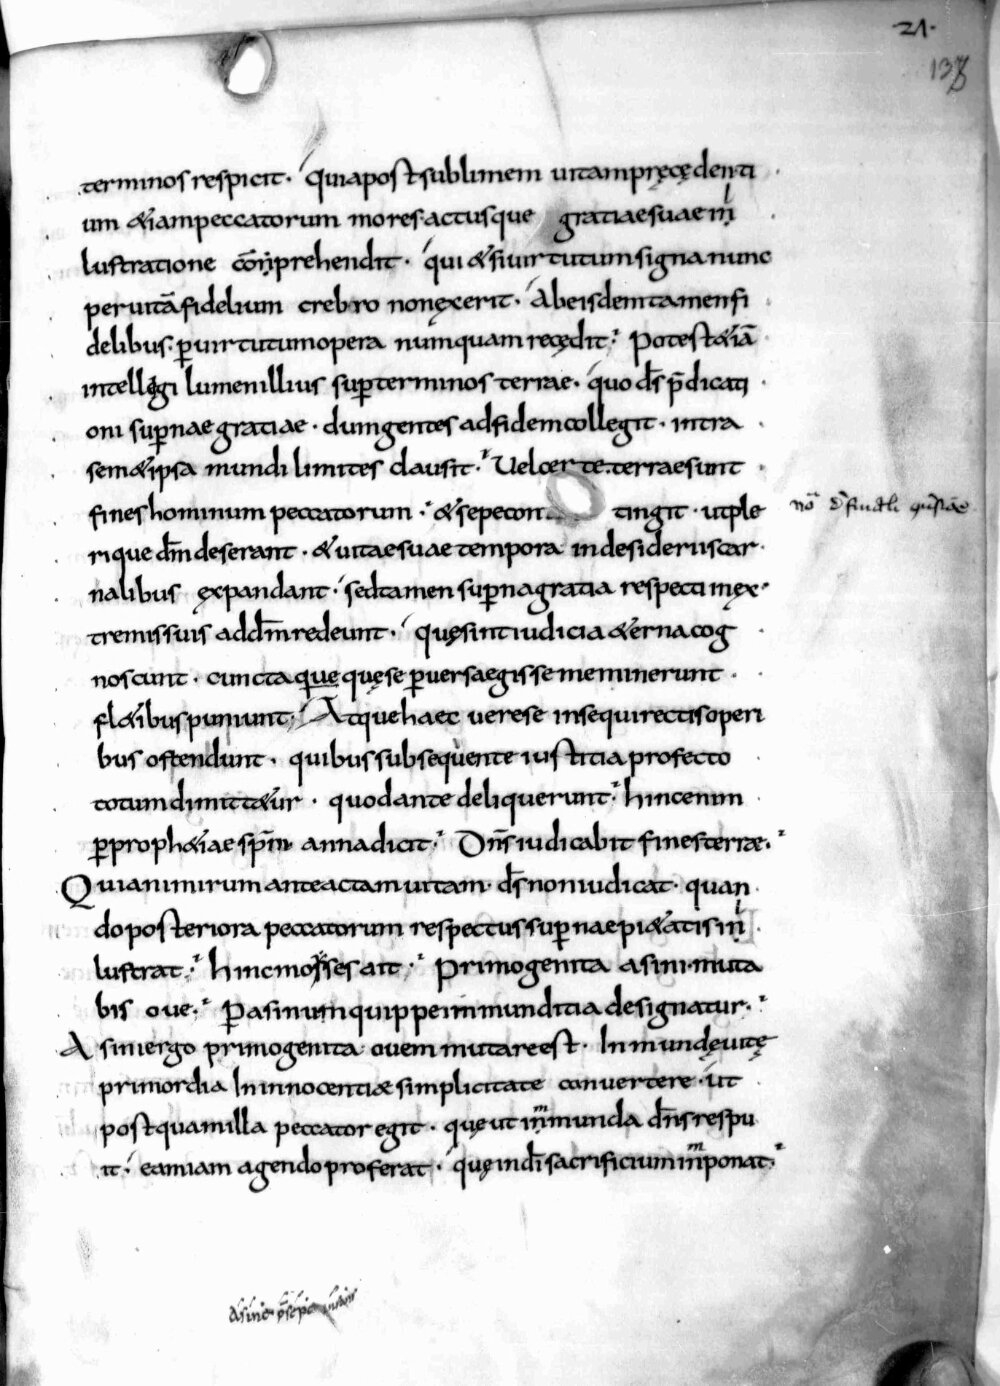 21.
138
terminos respicit. quia post sublimem uitam pręcędenti
um &iam peccatorum mores. actusque gratiae suae in
lustratione comprehendit. qui & si uirtutum signa nunc
per uitā fidelium crebro non exerit. Ab eisdem tamen fi
delibus. ꝑ uirtutum opera numquam recędit. Potest &iā
intellegi lumen illius suꝑ terminos terrae. quo dS p̄dicati
oni suꝑnae gratiae. dum gentes ad fidem collegit. intra
sem&ipsa mundi limites clausit. Uel certe. terrae sunt
fines hominum peccatorum. & sepe con tingit. ut ple
rique dm̄ deserant. & uitae suae tempora in desideriis car
nalibus expandant. sed tamen suꝑna gratia respecti in ex
tremis suis ad dm̄ redeunt. quę sint iudicia &erna cog
noscunt. cuncta que quę se ꝑuersa egisse meminerunt.
fl&ibus puniunt. Atque haec uere se insequi rectis operi
bus ostendunt. quibus subsequente iustitia profecto
totum dimitt&ur. quod ante deliquerunt. hinc enim
ꝑ proph&iae sp̄m anna dicit. Dn̄s iudicabit fines terrae.
Quia nimirum ante actam uitam. dS non iudicat. quan
do posteriora peccatorum respectus suꝑnae pi&atis in
lustrat. hinc moyses ait. Primogenita asini. muta
bis oue. P asinum quippe inmunditia designatur.
Asini ergo primogenita ouem mutare est. In mundę uitę
primordia In innocentiae simplicitate conuertere. ut
postquam illa peccator egit. quę ut inmunda dn̄s respu
it. eam iam agendo proferat. quę in dī sacrificium inponat.